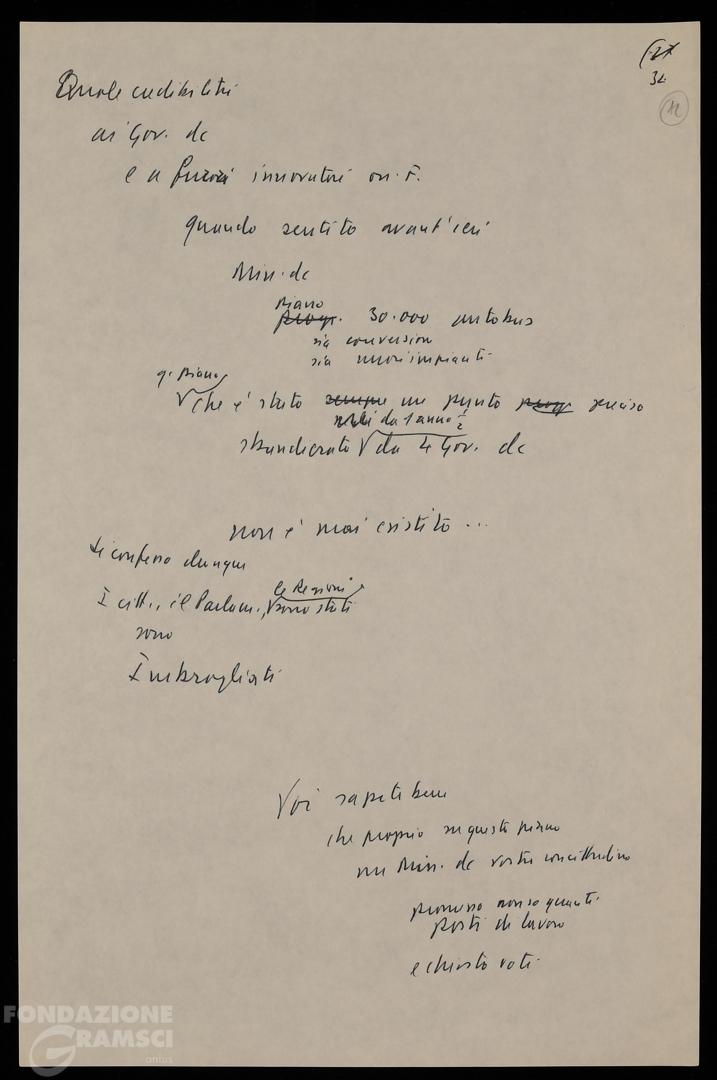 (27
32
12
Quale credibilità
ai Gov. dc
e a innovatori on. F.
quando sentito avant'ieri
Min. dc
piano
progr. 30.000 autobus
sia conversion
sia nuovi impianti
q. piano
che è stato sempre un punto preciso
da 1 anno ½
sbandierato da 4 Gov. dc
non è mai esistito...
Si confessa dunque
le Regioni
I citt., il Parlam., sono stati
sono
Imbrogliati
Voi sapete bene
che proprio su questo piano
un Min. dc vostro concittadino
promesso non so quanti
posti di lavoro
e chiesto voti
FONDAZIONE
GRAMSCI
onlus